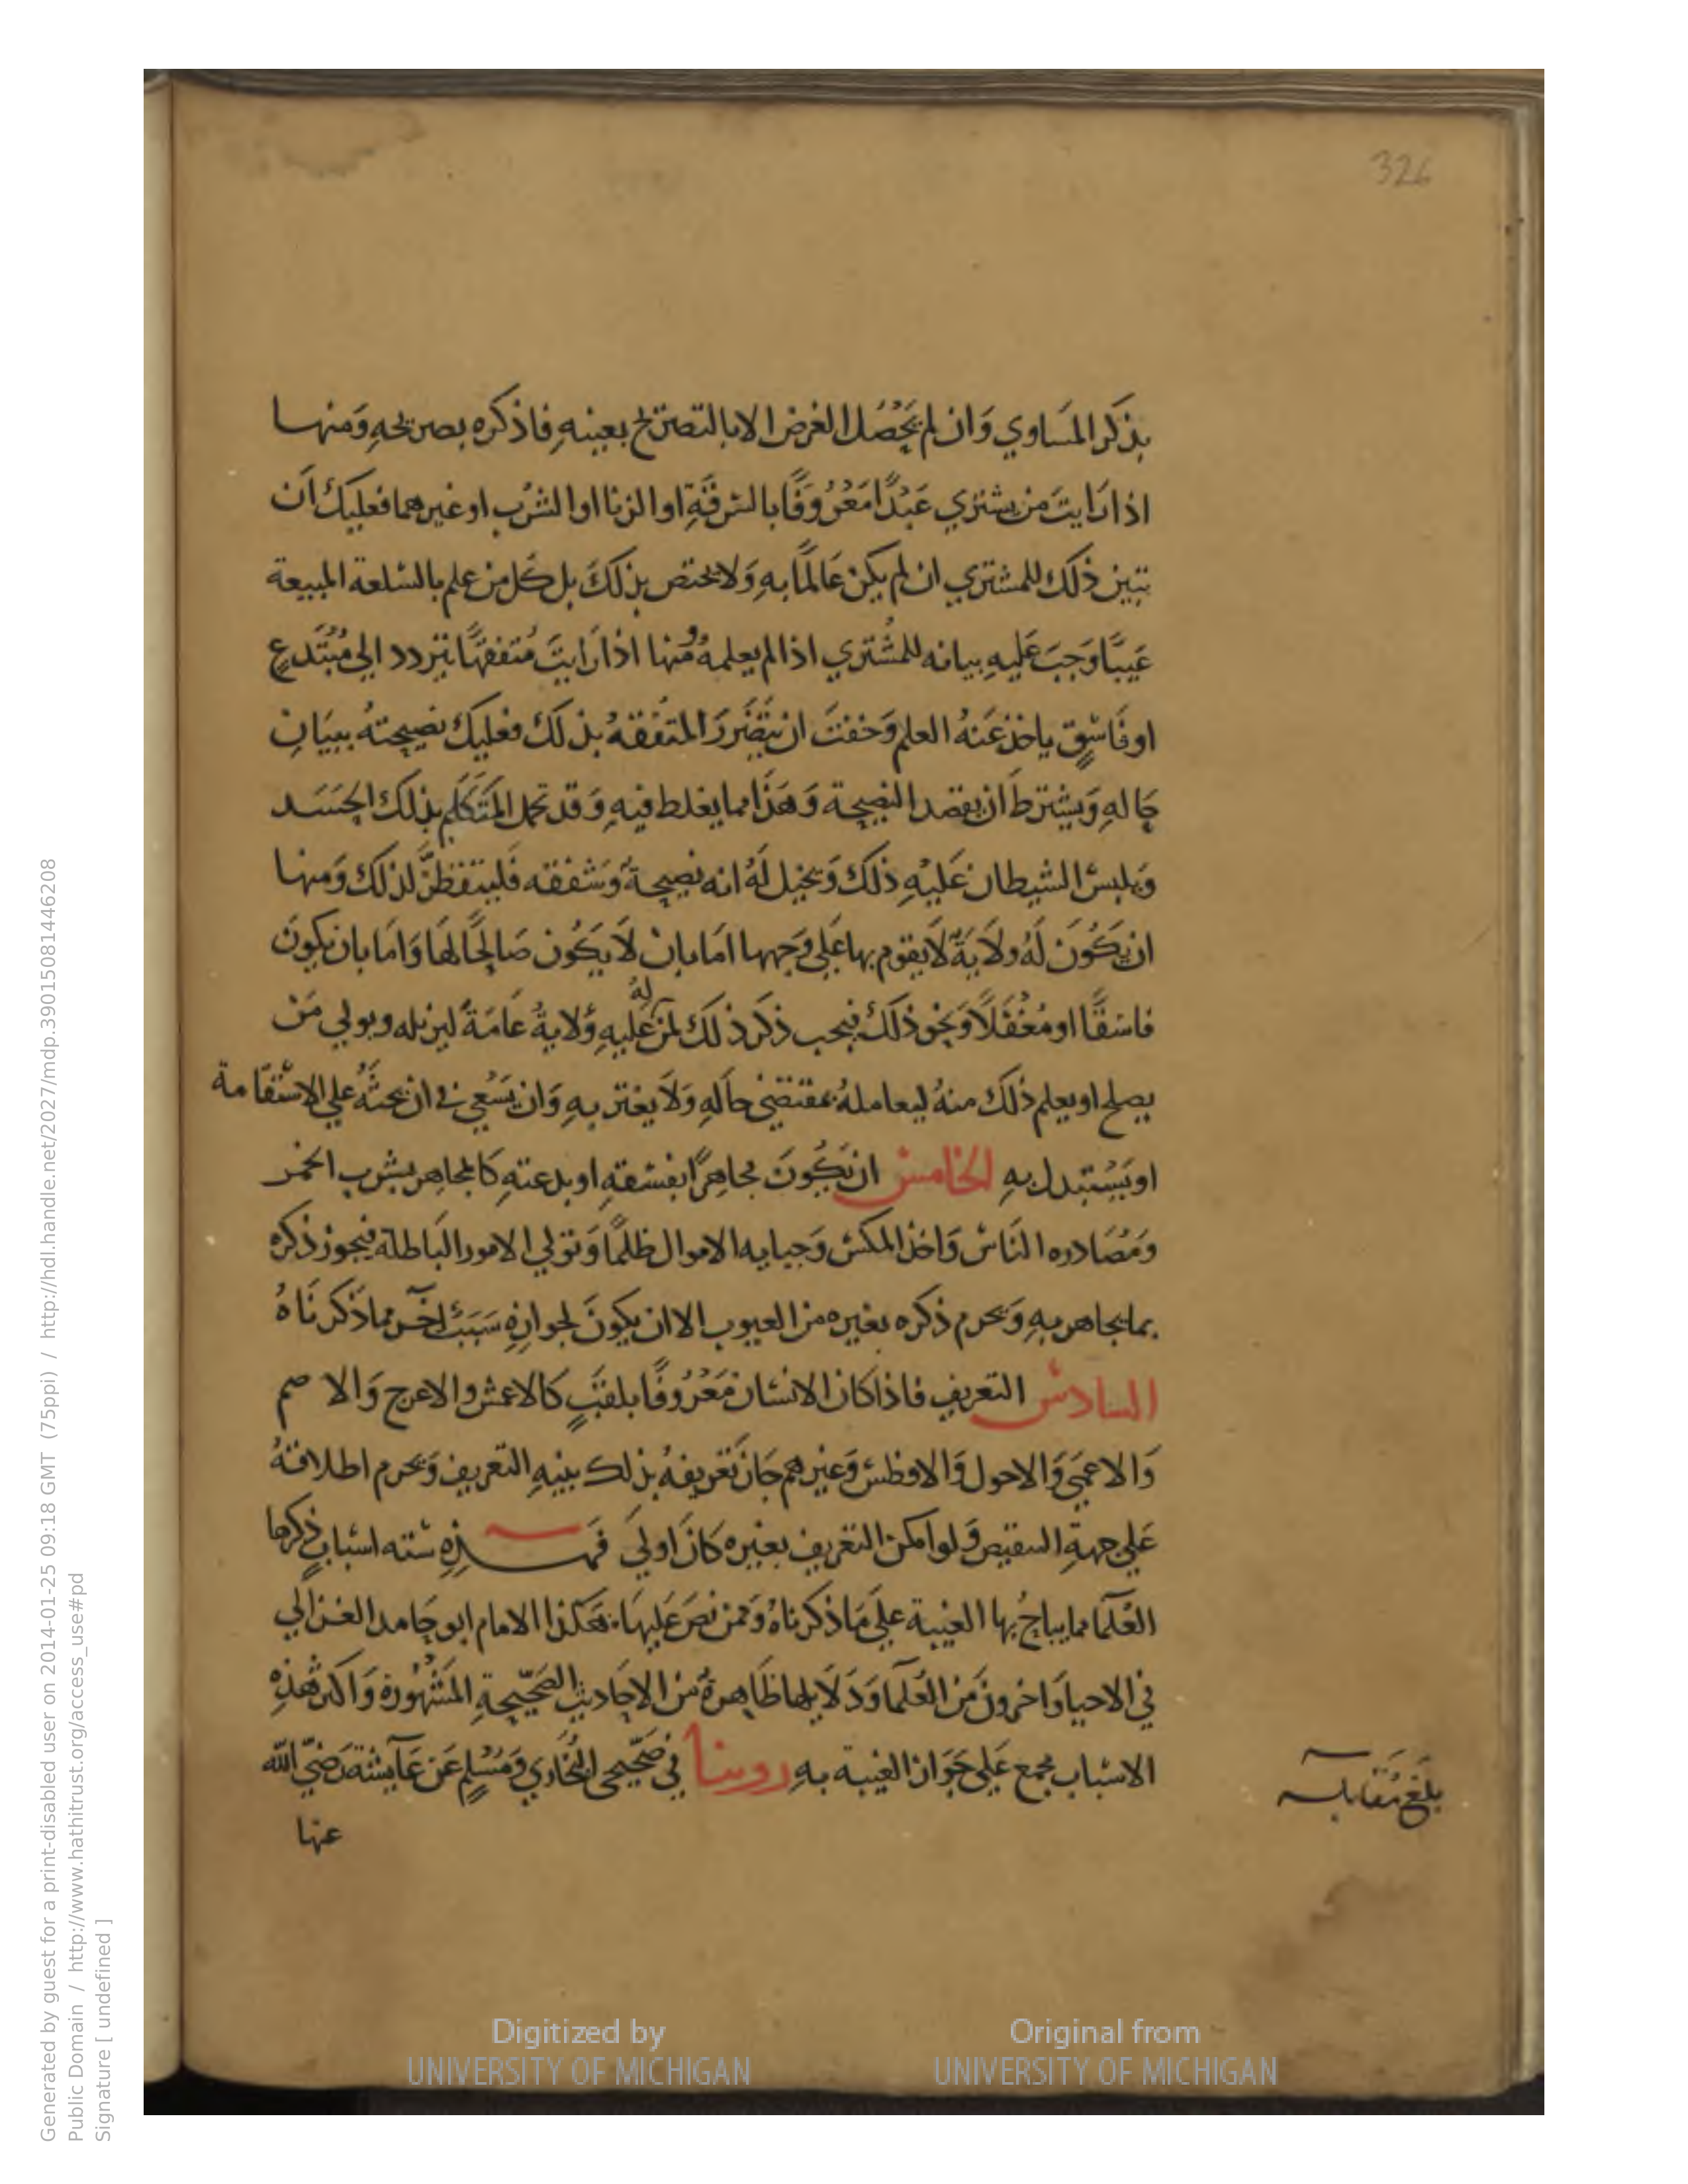 326
بذكر المساوي وان لم يحصل الغرض الا بالتصريح بعينه فاذكره بصريحه ومنها
اذا رايت من يشتري عبدا معروفا بالسرقة او الزنا او الشرب او غيرهما فعليك ان
تبين ذلك للمشتري ان لم يكن عالما به ولا يختص بذلك بل كل من علم بالسلعة المبيعة
عيبا وجب عليه بيانه للمشتري اذا لم يعلمه ومنها اذا رايت متفقها يتردد الي مبتدع
او فاسق ياخذ عنه العلم وخفت ان يتضرر المتفقه بذلك فعليك نصيحته ببيان
حاله ويشترط ان يقصد النصيحة وهذا مما يغلط فيه وقد يحمل المتكلم بذلك الحسد
ويلبس الشيطان عليه ذلك ويخيل له انه نصيحة وشفقه فليتفطن لذلك ومنها
ان يكون له ولاية لا يقوم بها علي وجهها اما بان لا يكون صالحا لها واما بان يكون
فاسقا او مغفلا ونحو ذلك فيجب ذكر ذلك لمن له عليه ولاية عامة ليزيله ويولي من
يصلح او يعلم ذلك منه ليعامله بمقتضي حاله ولا يغتر به وان يسعي في ان يحثه علي الاستقامة
او يستبدل به الخامس ان يكون مجاهرا بفسقه او بدعته كالمجاهر بشرب الخمر
ومصادره الناس واخذ المكس وجبايه الاموال ظلما وتولي الامور الباطلة فيجوز ذكره
بما يجاهر به ويحرم ذكره بغيره من العيوب الا ان يكون لجوازه سبب اخر مما ذكرناه
السادس التعريف فاذا كان الانسان معروفا بلقب كالاعمش والاعرج والاصم
والاعمي والاحول والافطس وغيرهم جاز تعريفه بذلك بنيه التعريف ويحرم اطلاقه
علي جهة التنقيص ولو امكن التعريف بغيره كان اولي فهذه سته اسباب ذكرها
العلما مما يباح بها الغيبة علي ما ذكرناه وممن نص عليها هكذا الامام ابو حامد الغزالي
في الاحيا واخرون من العلما ودلايلها ظاهرة من الاحاديث الصحيحة المشهورة واكثر هذه
الاسباب مجمع علي جواز الغيبة به روينا في صحيحي البخاري ومسلم عن عايشة رضي الله
عنها
بلغ مقابله
Digitized by
UNIVERSITY OF MICHIGAN
Original from
UNIVERSITY OF MICHIGAN
Generated by guest for a print-disabled user on 2014-01-25 09:18 GMT (75ppi) / http://hdl.handle.net/2027/mdp.39015081446208
Public Domain / http://www.hathitrust.org/access_use#pd
Signature [ undefined ]